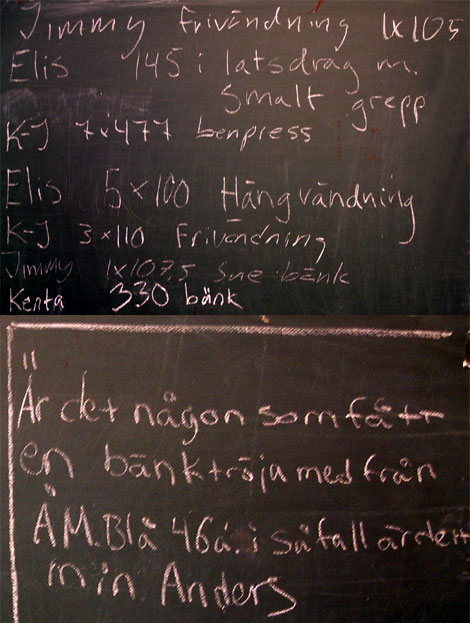 Jimmy frivändning 1x105
Elis 145 i latsdrag m.
smalt grepp
K-J 7x477 benpress
Elis 5x100 Hängvändning
K-J 3x110 Frivändning
Jimmy 1x107,5 Sne-bänk
Kenta 330 bänk
Är det någon som fått
en bänktröja med från
ÄM. Blå 46a. i såfall är den
min Anders